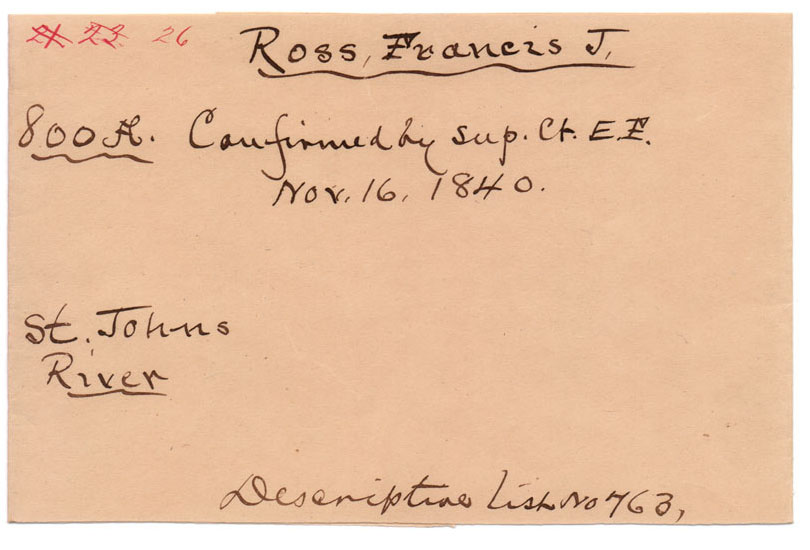 21 23. 26
Ross, Francis J.
800 A. Confirmed by Sup. Ct. E.F.
Nov. 16, 1840.
St. Johns
River
Descriptive List No 763,